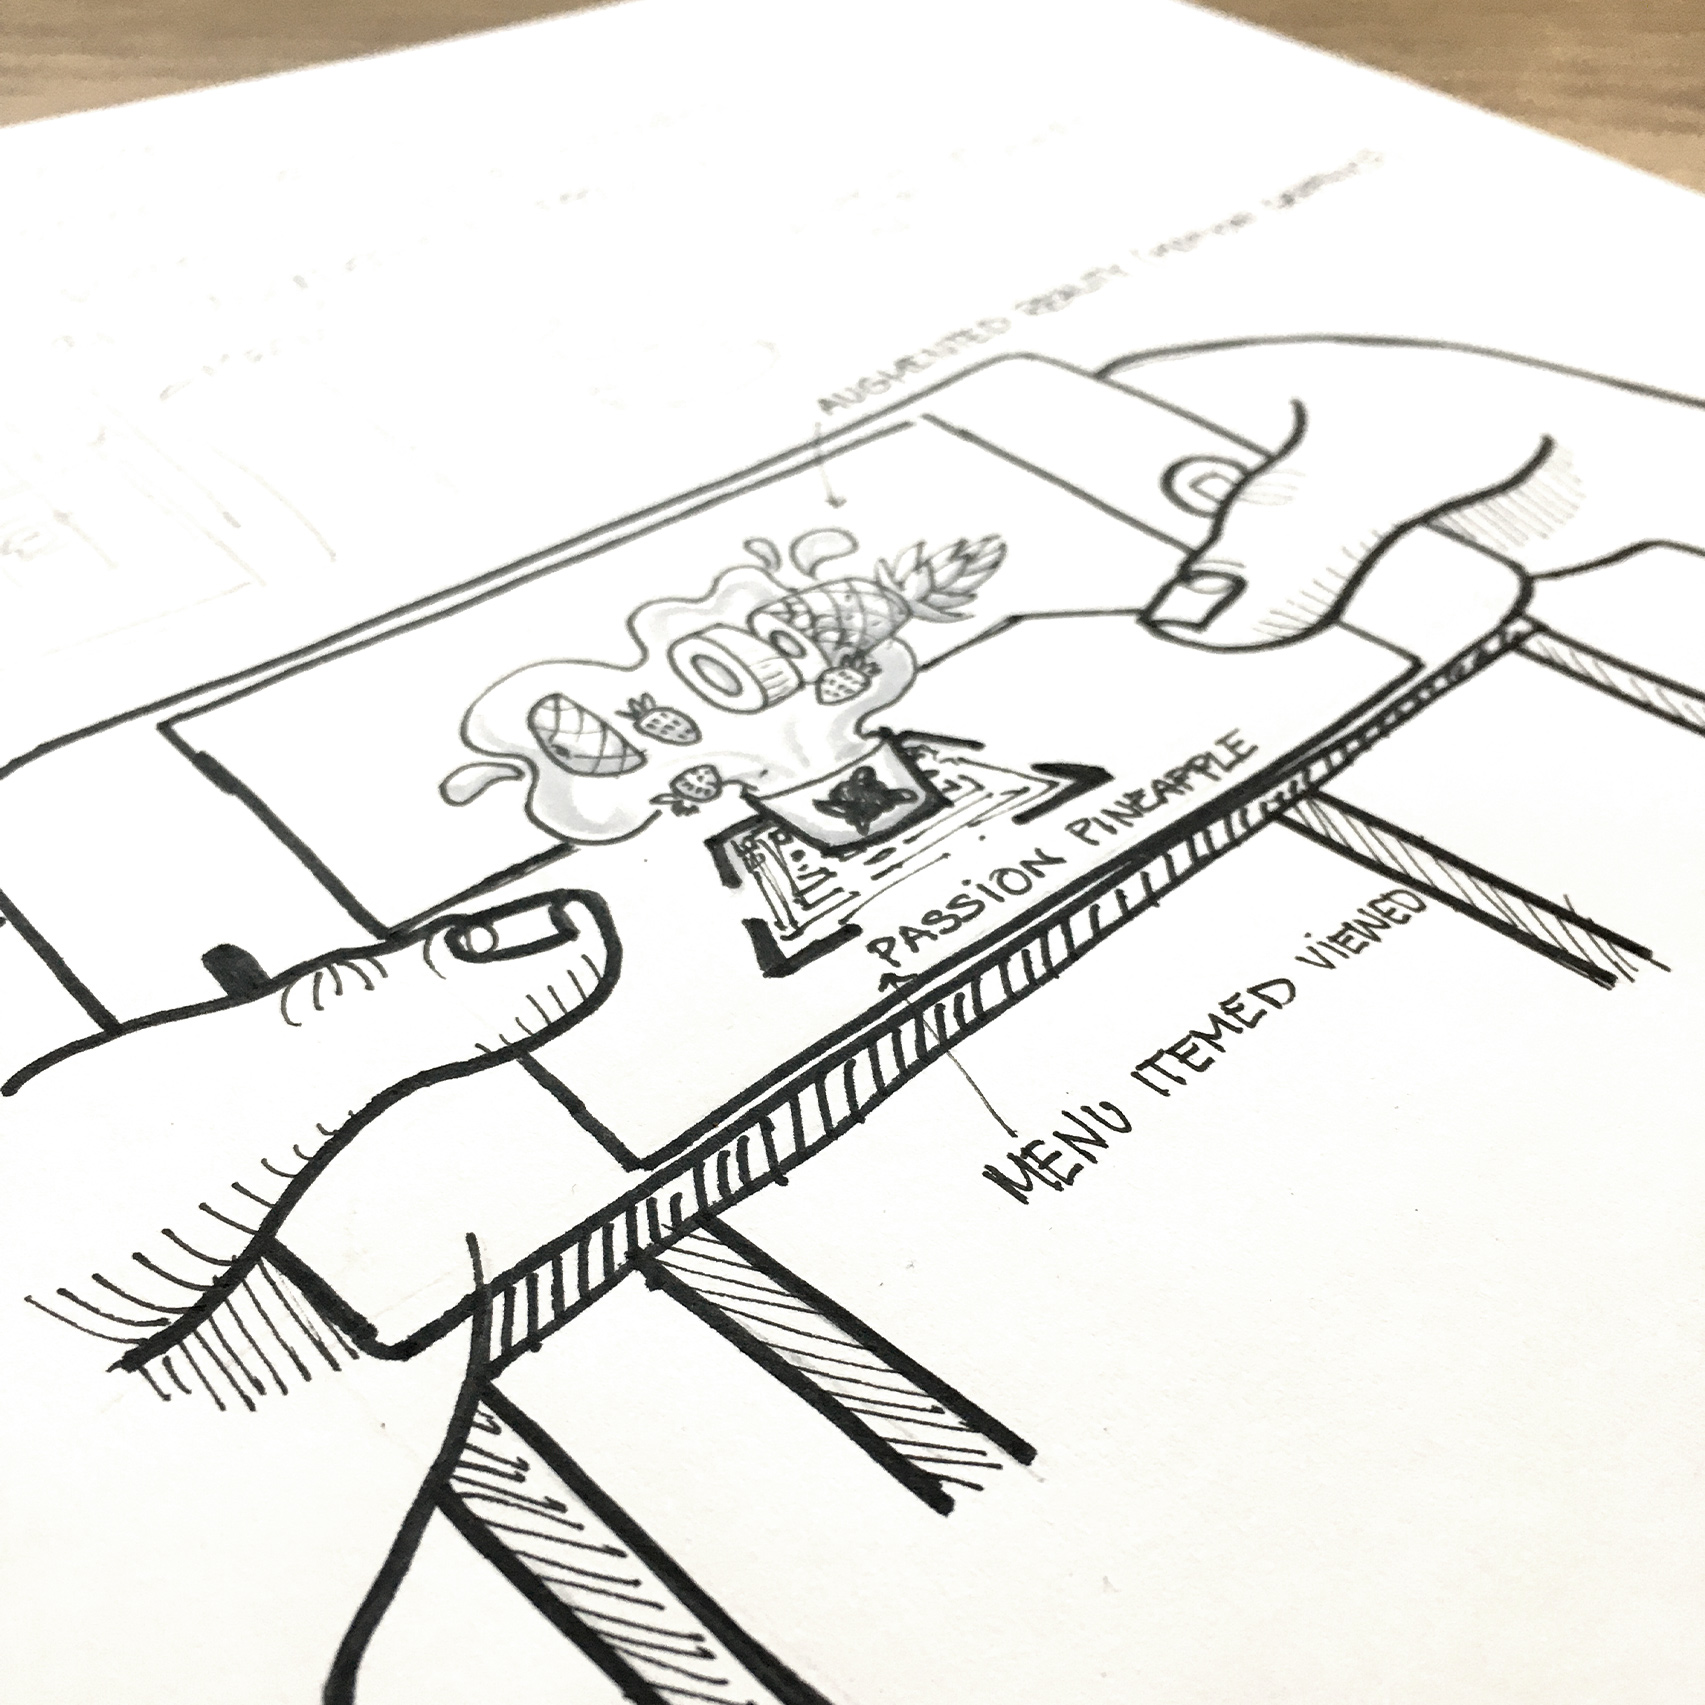 AUGMENTED REALITY
PASSION PINEAPPLE
MENU ITEMED VIEWED